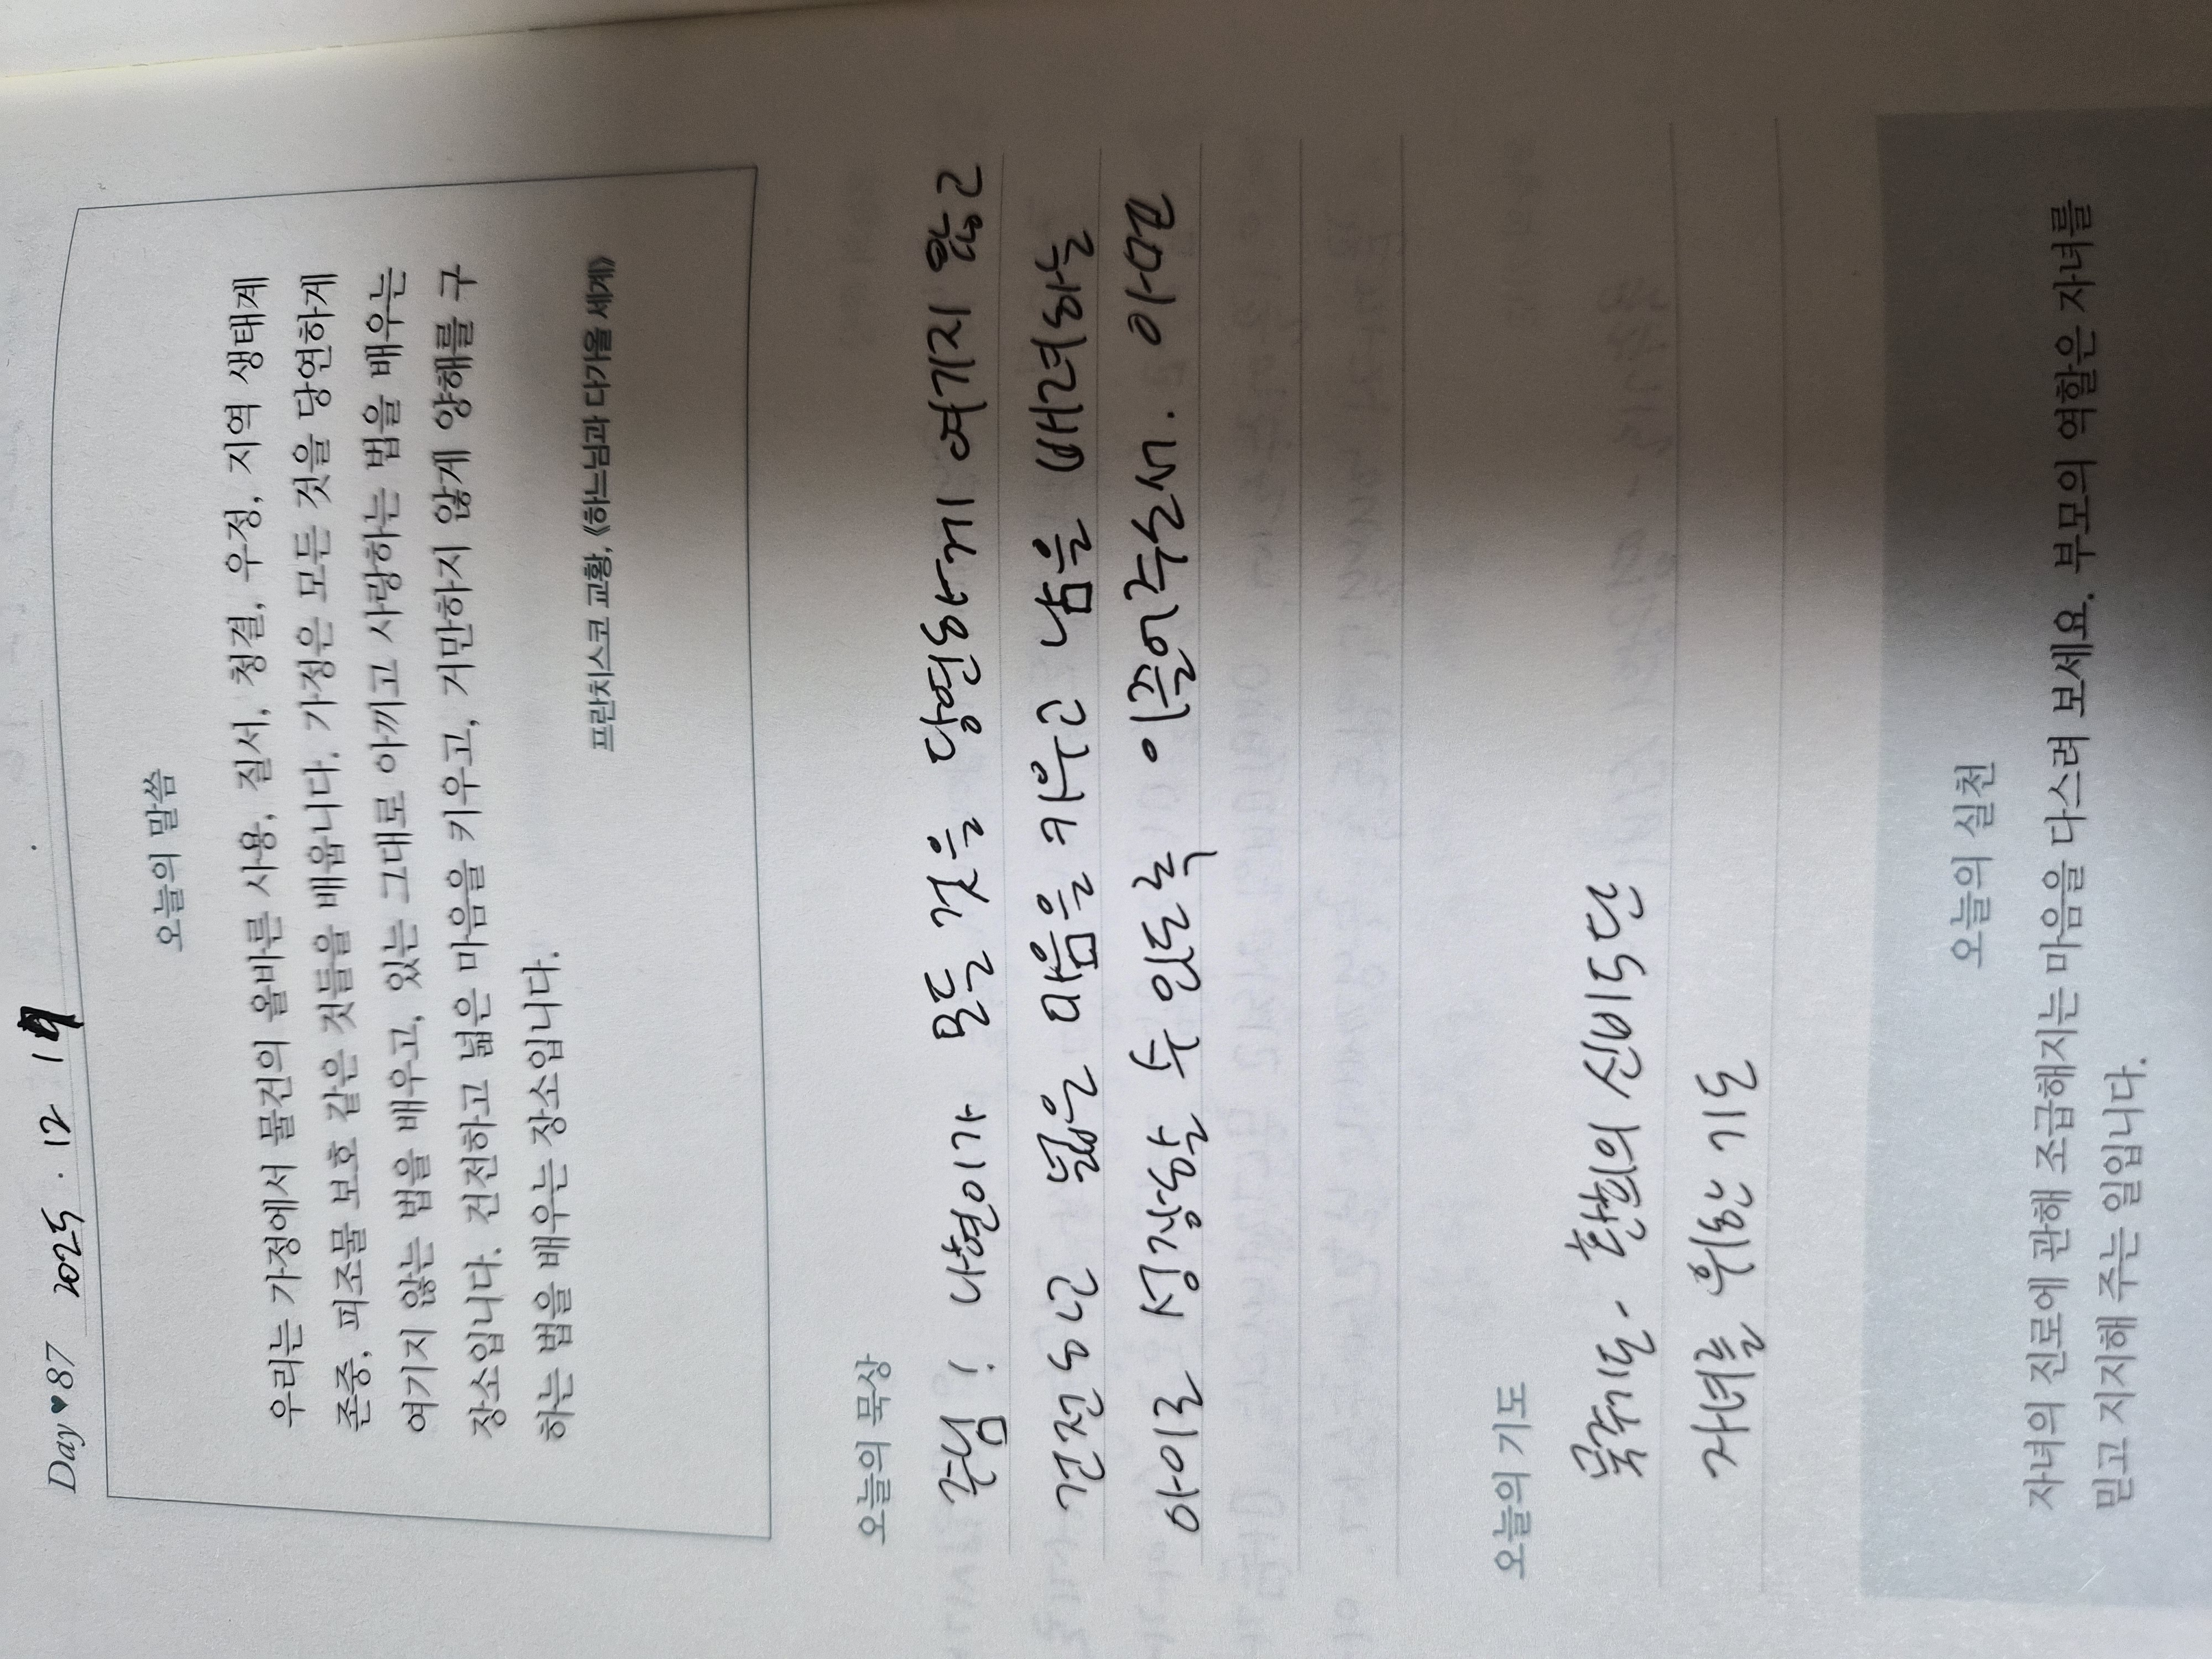 Day ♥ 87 2025 . 12 19
오늘의 말씀
우리는 가정에서 물건의 올바른 사용, 질서, 청결, 우정, 지역 생태계
존중, 피조물 보호 같은 것들을 배웁니다. 가정은 모든 것을 당연하게
여기지 않는 법을 배우고, 있는 그대로 아끼고 사랑하는 법을 배우는
장소입니다. 건전하고 넓은 마음을 키우고, 거만하지 않게 양해를 구
하는 법을 배우는 장소입니다.
프란치스코 교황, 《하느님과 다가올 세계》
오늘의 묵상
주님! 나현이가 모든 것을 당연하게 여기지 않고
건전하고 넓은 마음을 키우고 남을 배려하는
아이로 성장할 수 있도록 이끌어주소서. 아멘
오늘의 기도
묵주기도 - 환희의 신비 5단
자녀를 위한 기도
오늘의 실천
자녀의 진로에 관해 조급해지는 마음을 다스려 보세요. 부모의 역할은 자녀를
믿고 지지해 주는 일입니다.